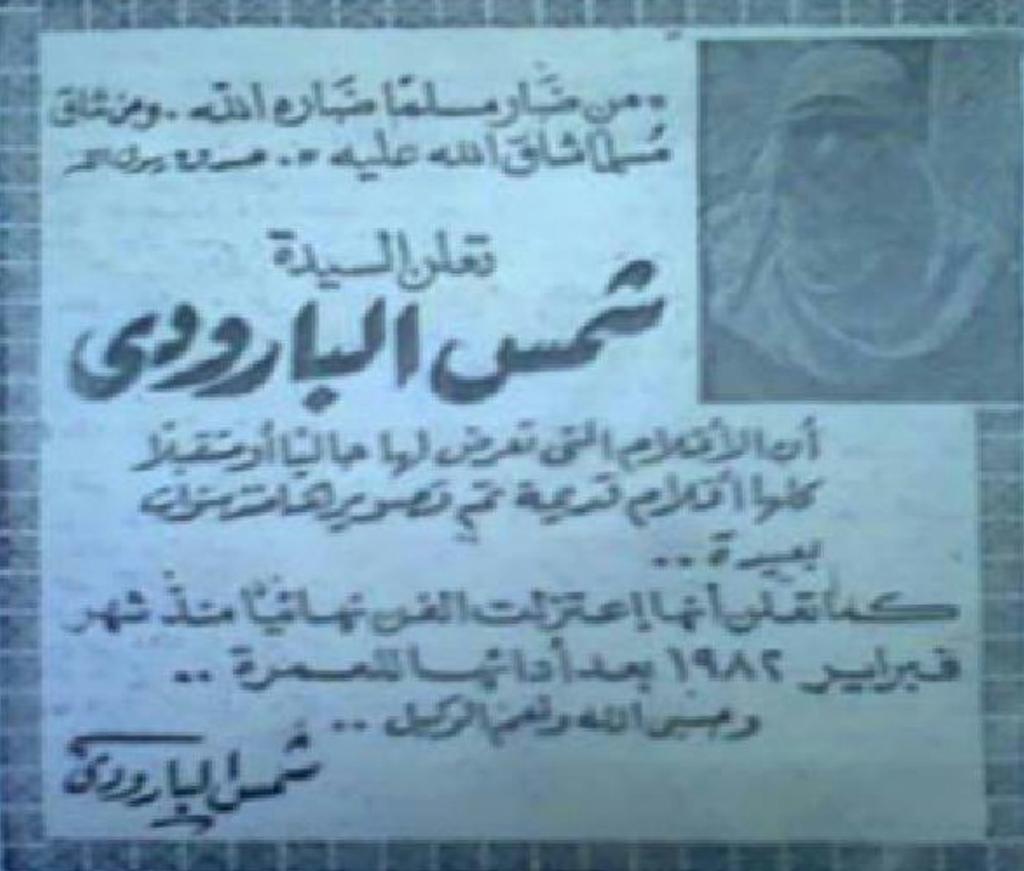 «من ضَار مسلمًا ضَاره الله .. ومن شاق
مُسلمًا شاق الله عليه» .. صدق رسول الله
تعلن السيدة
شمس البارودى
أن الأفلام التى تعرض لها حاليًا أو مستقبلًا
كلها أفلام قديمة تم تصويرها منذ سنوات
بعيدة ..
كما تعلن أنها إعتزلت الفن نهائيًا منذ شهر
فبراير ١٩٨٢ بعد أدائها للعمرة ..
وحسبى الله ونعم الوكيل ..
شمس البارودى